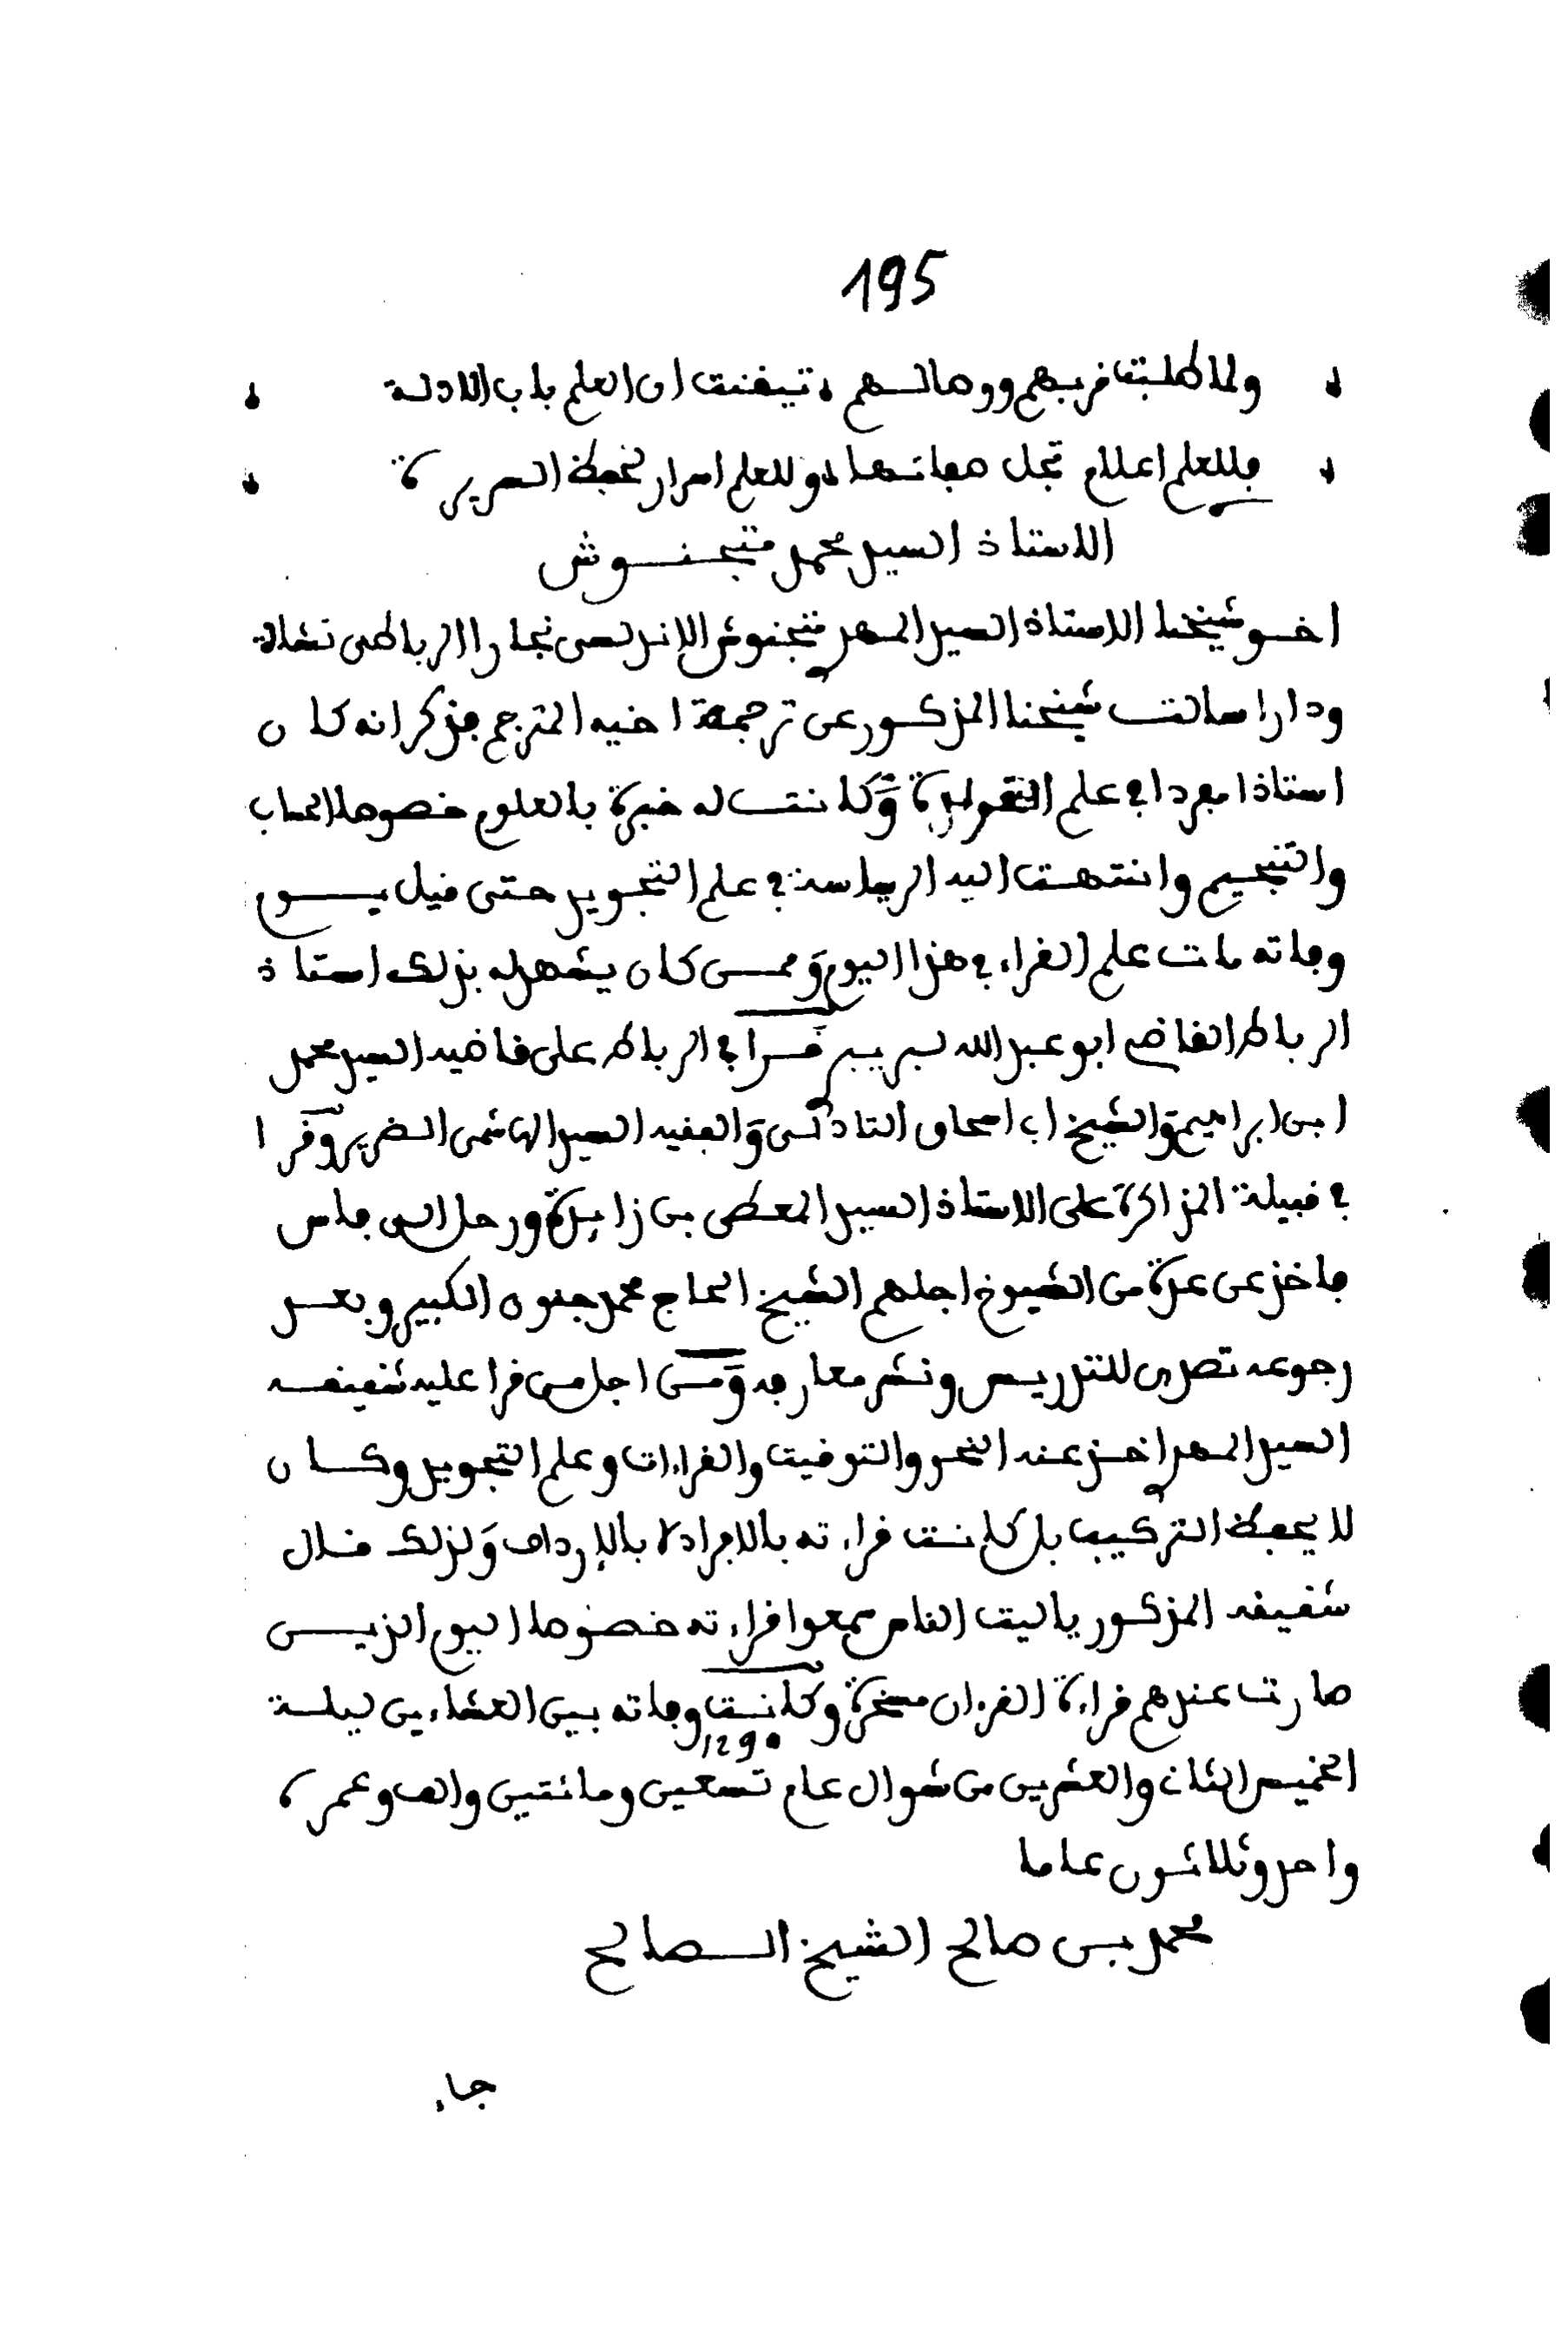 195
ولما طلبت قربهم ووصالهم ، تيقنت ان العلم باب الادلة
فللعلم اعلام تجل صفاتها ، وللعلم اسرار لحفظ السريرة
الاستاذ السيد محمد متجنوش
اخو شيخنا الاستاذ السيد المهدي متجنوش الاندلسي نجارا الرباطي نشأة
ودارا سالت شيخنا المذكور عن ترجمة اخيه المترجم فذكر انه كان
استاذا مفردا في علم وكانت له خبرة بالعلوم خصوصا الحساب
والتنجيم وانتهت اليه الرياسة في علم التجويد حتى قيل يوم
وفاته مات علم القراء في هذا اليوم وممن كان يشهد له بذلك استاذ
الرباط القاضي ابو عبد الله لبريبر قرا في الرباط على قاضيه السيد محمد
ابن ابراهيم والشيخ اب اسحاق التادلي والفقيه السيد الهاشمي الضرير وقرا
في قبيلة المذاكرة على الاستاذ السيد المعطى بن زابدة ورحل الى فاس
فاخذ عن عدة من الشيوخ اجلهم الشيخ الحاج محمد جنون الكبير وبعد
رجوعه تصدى للتدريس ونشر معارفه ومن اجل من قرا عليه شقيقه
السيد المهدي اخذ عنه النحو والتوقيت والقراءات وعلم التجويد وكان
لا يحفظ التركيب بل كانت قراءته بالافراد لا بالارداف ولذلك قال
شقيقه المذكور ياليت الناس سمعوا قراءته خصوصا اليوم الذين
صارت عندهم قراءة القرءان مسخرة وكانت وفاته بين العشاءين ليلة
1290
الخميس الثاني والعشرين من شوال عام تسعين ومائتين والف وعمره
واحد وثلاثون عاما
محمد بن صالح الشيخ الصالح
جاء